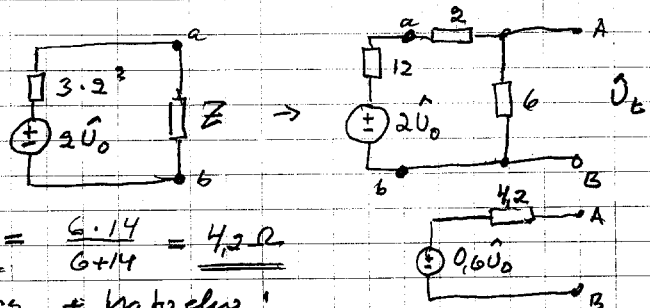 a
3·2²
2Û₀
Z
b
→
a
2
A
12
2Û₀
6
Û_t
b
B
= 6·14 / 6+14 = 4,2 Ω
4,2
A
0,6Û₀
B